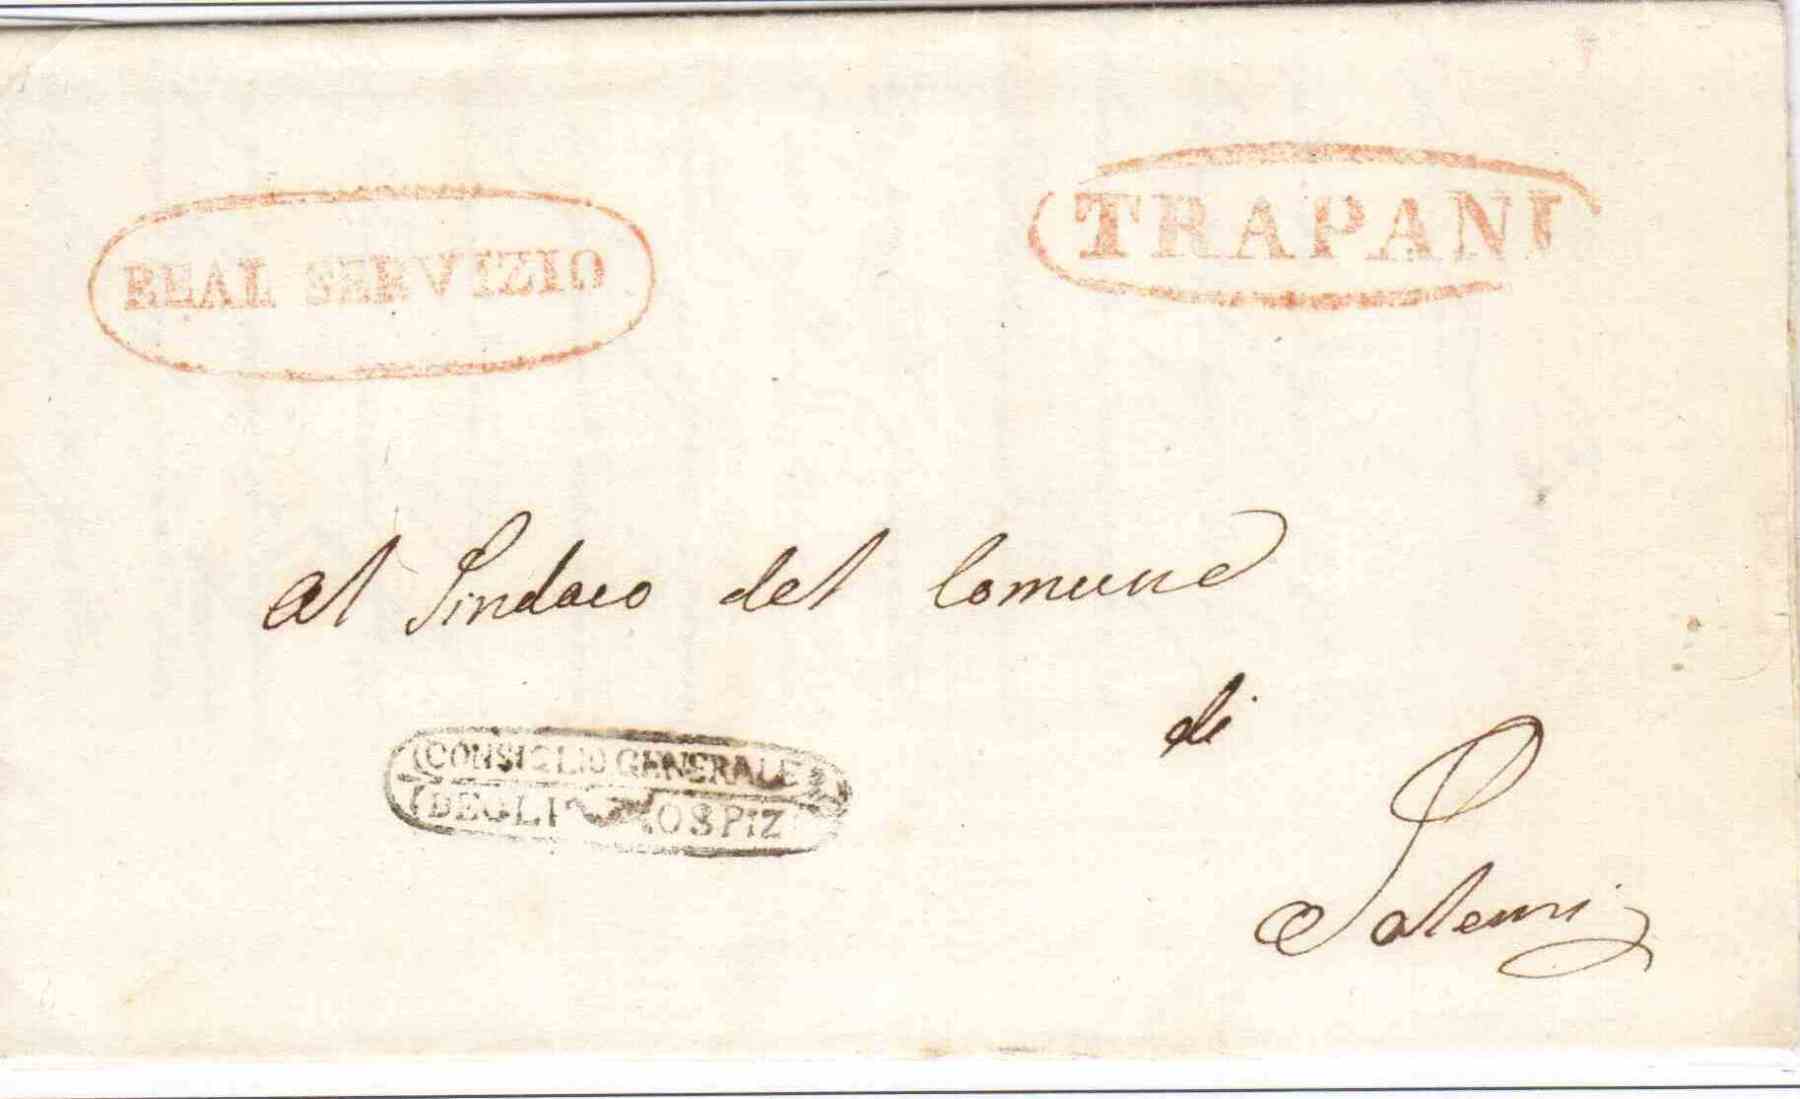 REAL SERVIZIO
TRAPANI
Al Sindaco del Comune
di
Salemi
CONSIGLIO GENERALE
DEGLI OSPIZ